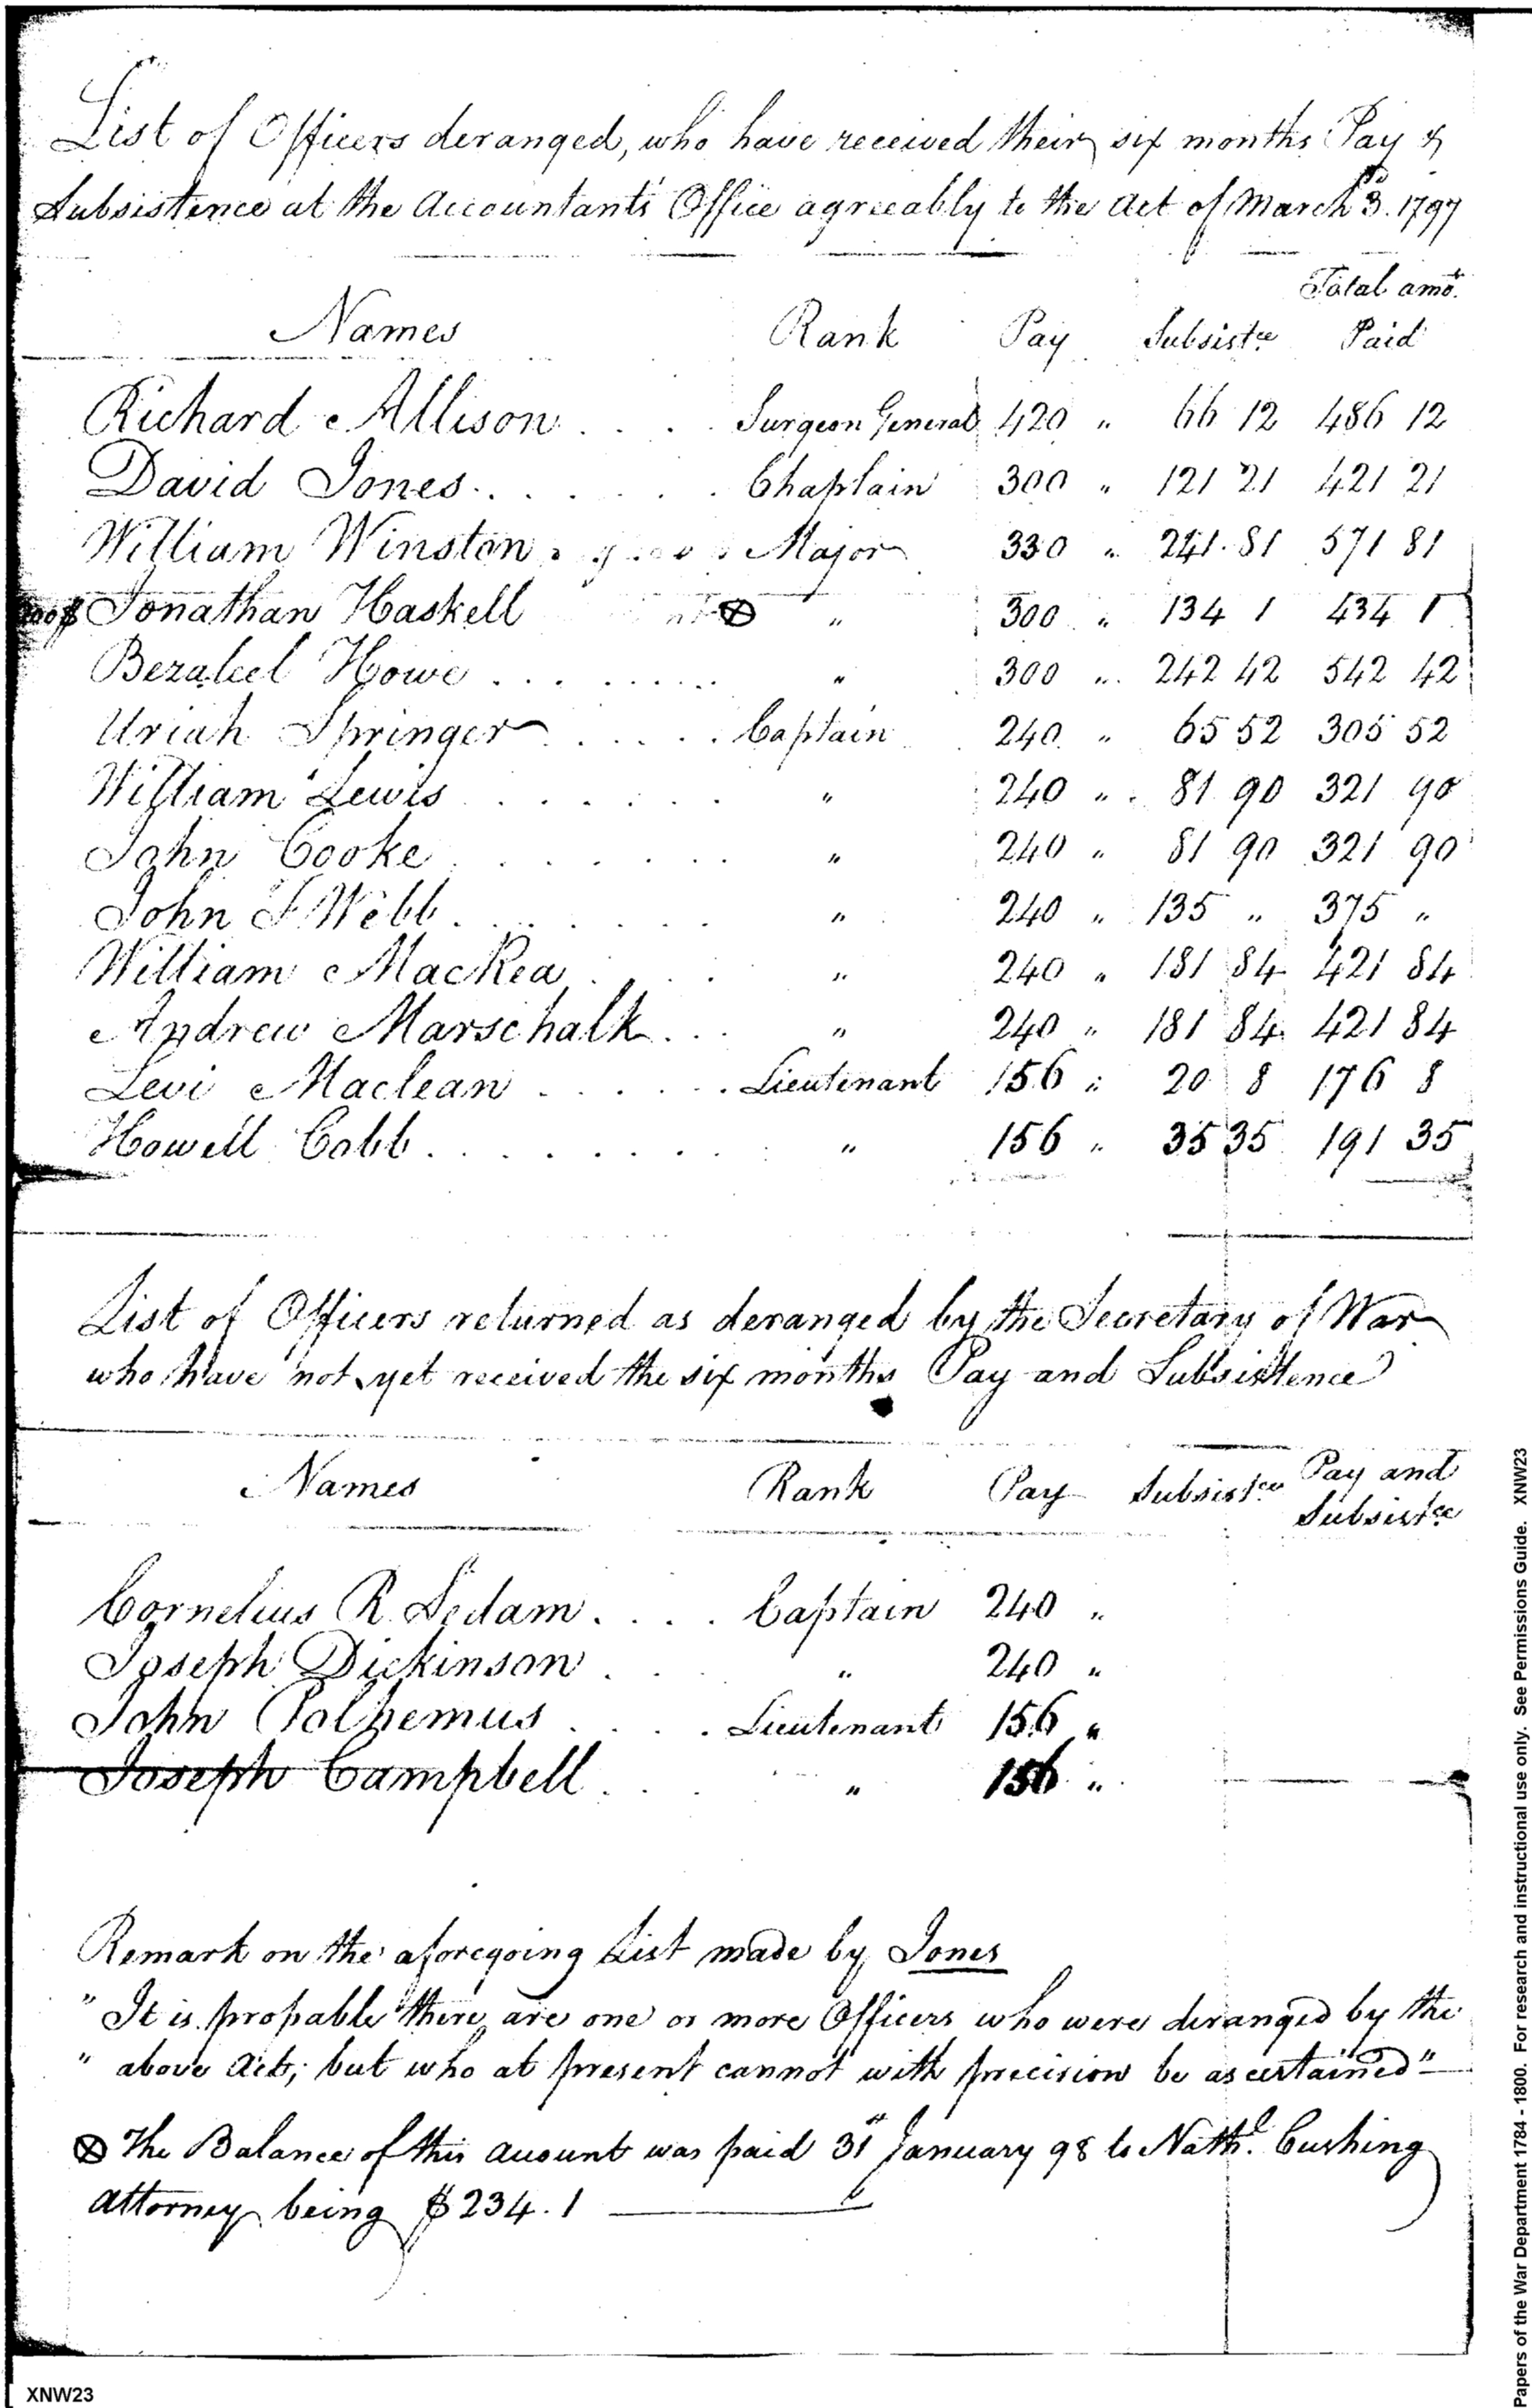 List of Officers deranged, who have received their six months Pay &
Subsistence at the Accountants Office agreeably to the Act of March 3d. 1797
Total amt.
Names Rank Pay Subsistce Paid
Richard Allison . . . Surgeon General 420 " 66 12 486 12
David Jones . . . . . . Chaplain 300 " 121 21 421 21
William Winston Major 330 " 241.81 571 81
Jonathan Haskell ⊗ " 300 " 134 1 434 1
Bezaleel Howe . . . . . . . . " 300 " 242 42 542 42
Uriah Springer . . . . . Captain 240 " 65 52 305 52
William Lewis . . . . . . " 240 " 81 90 321 90
John Cooke . . . . . . . " 240 " 81 90 321 90
John F Webb . . . . . . . " 240 " 135 " 375 "
William MacRea . . . " 240 " 181 84 421 84
Andrew Marschalk . . . " 240 " 181 84 421 84
Levi Maclean . . . . . Lieutenant 156 " 20 8 176 8
Howell Cobb . . . . . . . . " 156 " 35 35 191 35
List of Officers returned as deranged by the Secretary of War
who have not yet received the six months Pay and Subsistence
Names Rank Pay Subsistce Pay and
Subsistce
Cornelius R. Sedam . . . . Captain 240 "
Joseph Dickinson . . . " 240 "
John Polhemus . . . . Lieutenant 156 "
Joseph Campbell . . . " 156 "
Remark on the aforegoing List made by Jones
" It is propable there are one or more Officers who were deranged by the
" above Act; but who at present cannot with precision be ascertained"
⊗ The Balance of this account was paid 31st January 98 to Nathl. Cushing
Attorney being $234.1
XNW23
Papers of the War Department 1784 - 1800. For research and instructional use only. See Permissions Guide. XNW23